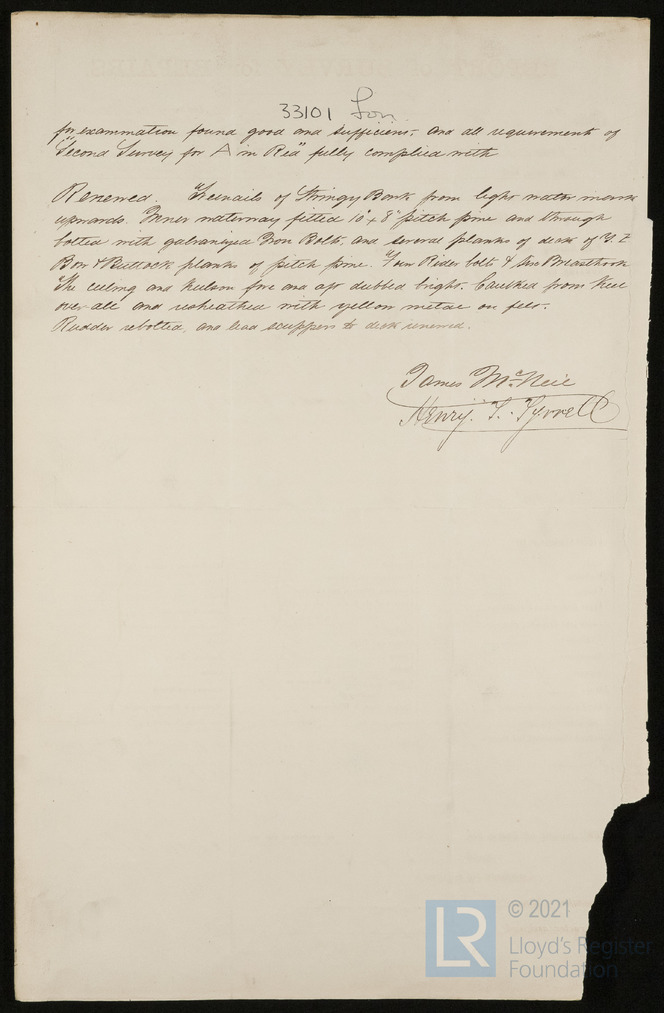 33101 Lon
for examination found good and sufficient, and all requirements of
"Second Survey for A in Red" fully complied with
Renewed. Treenails of Stringy Bark from light water mark
upwards. Inner waterway fitted 10" x 8" pitch pine and through
bolted with galvanized Iron Bolts, and several planks of deck of Y. P
Bow & Buttock planks of pitch pine. Four Rider bolts & Breasthook
The ceiling and keelson fore and aft dubbed bright. Caulked from Keel
over all and resheathed with yellow metal on felt.
Rudder rebolted, and lead scuppers to deck renewed.
James McNeil
Henry T. Tyrrell
LR
© 2021
Lloyd's Register
Foundation